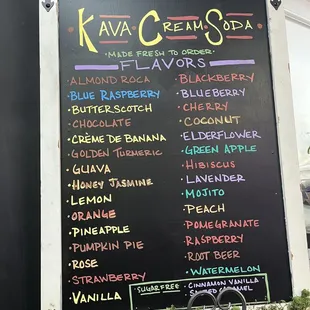 KAVA CREAM SODA
MADE FRESH TO ORDER
FLAVORS
· ALMOND ROCA
· BLUE RASPBERRY
· BUTTERSCOTCH
· CHOCOLATE
· CRÈME DE BANANA
· GOLDEN TURMERIC
· GUAVA
· HONEY JASMINE
· LEMON
· ORANGE
· PINEAPPLE
· PUMPKIN PIE
· ROSE
· STRAWBERRY
· VANILLA
· BLACKBERRY
· BLUEBERRY
· CHERRY
· COCONUT
· ELDERFLOWER
· GREEN APPLE
· HIBISCUS
· LAVENDER
· MOJITO
· PEACH
· POMEGRANATE
· RASPBERRY
· ROOT BEER
· WATERMELON
SUGAR FREE
· CINNAMON VANILLA
SALTED CARAMEL